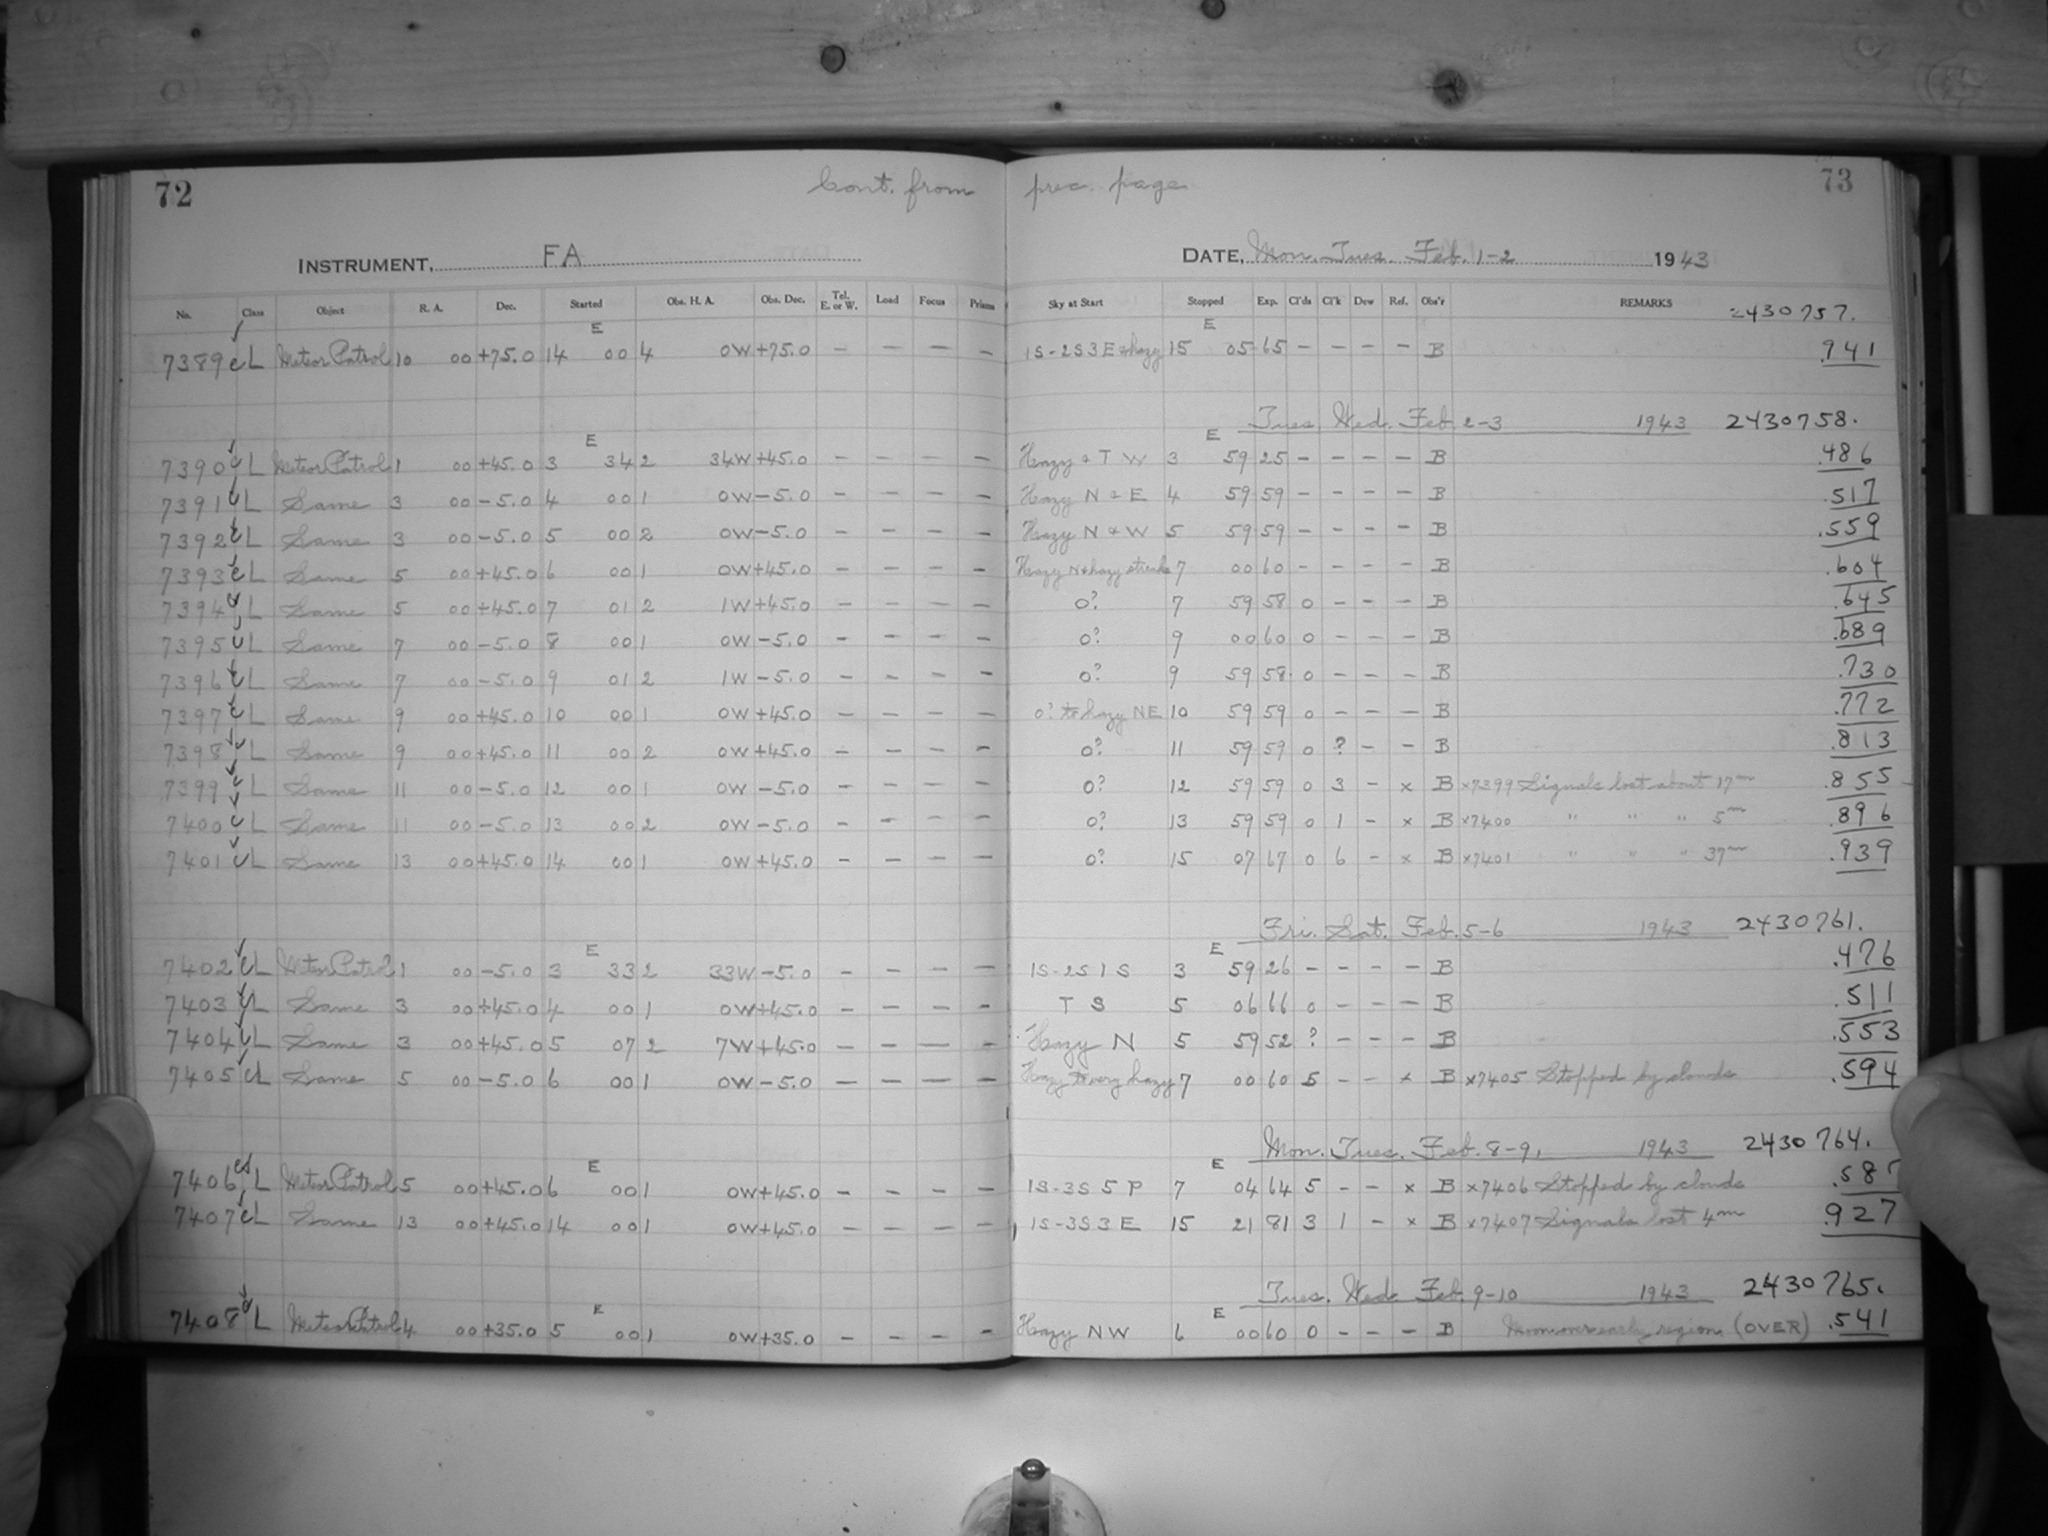 72 Cont. from prec. page 73
INSTRUMENT, FA DATE, Mon. Tues. Feb. 1-2 1943
No. Class Object R. A. Dec. Started Obs. H. A. Obs. Dec. Tel. E. or W. Load Focus Prisms Sky at Start Stopped Exp. Cl'ds Cl'k Dew Ref. Obs'r REMARKS 2430757.
E E
7389 c L Meteor Patrol 10 00 +75.0 14 00 4 0W +75.0 - - - - 1S-2S3E+hazy 15 05 65 - - - - B .941
Tues. Wed. Feb. 2-3 1943 2430758.
E E
7390 c L Meteor Patrol 1 00 +45.0 3 34 2 34W +45.0 - - - - Hazy + T W 3 59 25 - - - - B .486
7391 c L Same 3 00 -5.0 4 00 1 0W -5.0 - - - - Hazy N & E 4 59 59 - - - - B .517
7392 c L Same 3 00 -5.0 5 00 2 0W -5.0 - - - - Hazy N & W 5 59 59 - - - - B .559
7393 c L Same 5 00 +45.0 6 00 1 0W +45.0 - - - - Hazy N + hazy streaks 7 00 60 - - - - B .604
7394 c L Same 5 00 +45.0 7 01 2 1W +45.0 - - - - 0? 7 59 58 0 - - - B .645
7395 c L Same 7 00 -5.0 8 00 1 0W -5.0 - - - - 0? 9 00 60 0 - - - B .689
7396 c L Same 7 00 -5.0 9 01 2 1W -5.0 - - - - 0? 9 59 58 0 - - - B .730
7397 c L Same 9 00 +45.0 10 00 1 0W +45.0 - - - - 0? to hazy NE 10 59 59 0 - - - B .772
7398 c L Same 9 00 +45.0 11 00 2 0W +45.0 - - - - 0? 11 59 59 0 ? - - B .813
7399 c L Same 11 00 -5.0 12 00 1 0W -5.0 - - - - 0? 12 59 59 0 3 - x B x7399 Signals lost about 17m .855
7400 c L Same 11 00 -5.0 13 00 2 0W -5.0 - - - - 0? 13 59 59 0 1 - x B x7400 " " " 5m .896
7401 c L Same 13 00 +45.0 14 00 1 0W +45.0 - - - - 0? 15 07 67 0 6 - x B x7401 " " " 37m .939
Fri. Sat. Feb. 5-6 1943 2430761.
E E
7402 c L Meteor Patrol 1 00 -5.0 3 33 2 33W -5.0 - - - - 1S-2S1S 3 59 26 - - - - B .476
7403 c L Same 3 00 +45.0 4 00 1 0W +45.0 - - - - T S 5 06 66 0 - - - B .511
7404 c L Same 3 00 +45.0 5 07 2 7W +45.0 - - - - Hazy N 5 59 52 ? - - - B .553
7405 c L Same 5 00 -5.0 6 00 1 0W -5.0 - - - - Hazy to very hazy 7 00 60 5 - - x B x7405 Stopped by clouds .594
Mon. Tues. Feb. 8-9, 1943 2430764.
E E
7406 cd L Meteor Patrol 5 00 +45.0 6 00 1 0W +45.0 - - - - 1S-3S5P 7 04 64 5 - - x B x7406 Stopped by clouds .587
7407 c L Same 13 00 +45.0 14 00 1 0W +45.0 - - - - 1S-3S3E 15 21 81 3 1 - x B x7407 Signals lost 4m .927
Tues. Wed. Feb. 9-10 1943 2430765.
E E
7408 c L Meteor Patrol 4 00 +35.0 5 00 1 0W +35.0 - - - - Hazy NW 6 00 60 0 - - - B Moon over early region (OVER) .541